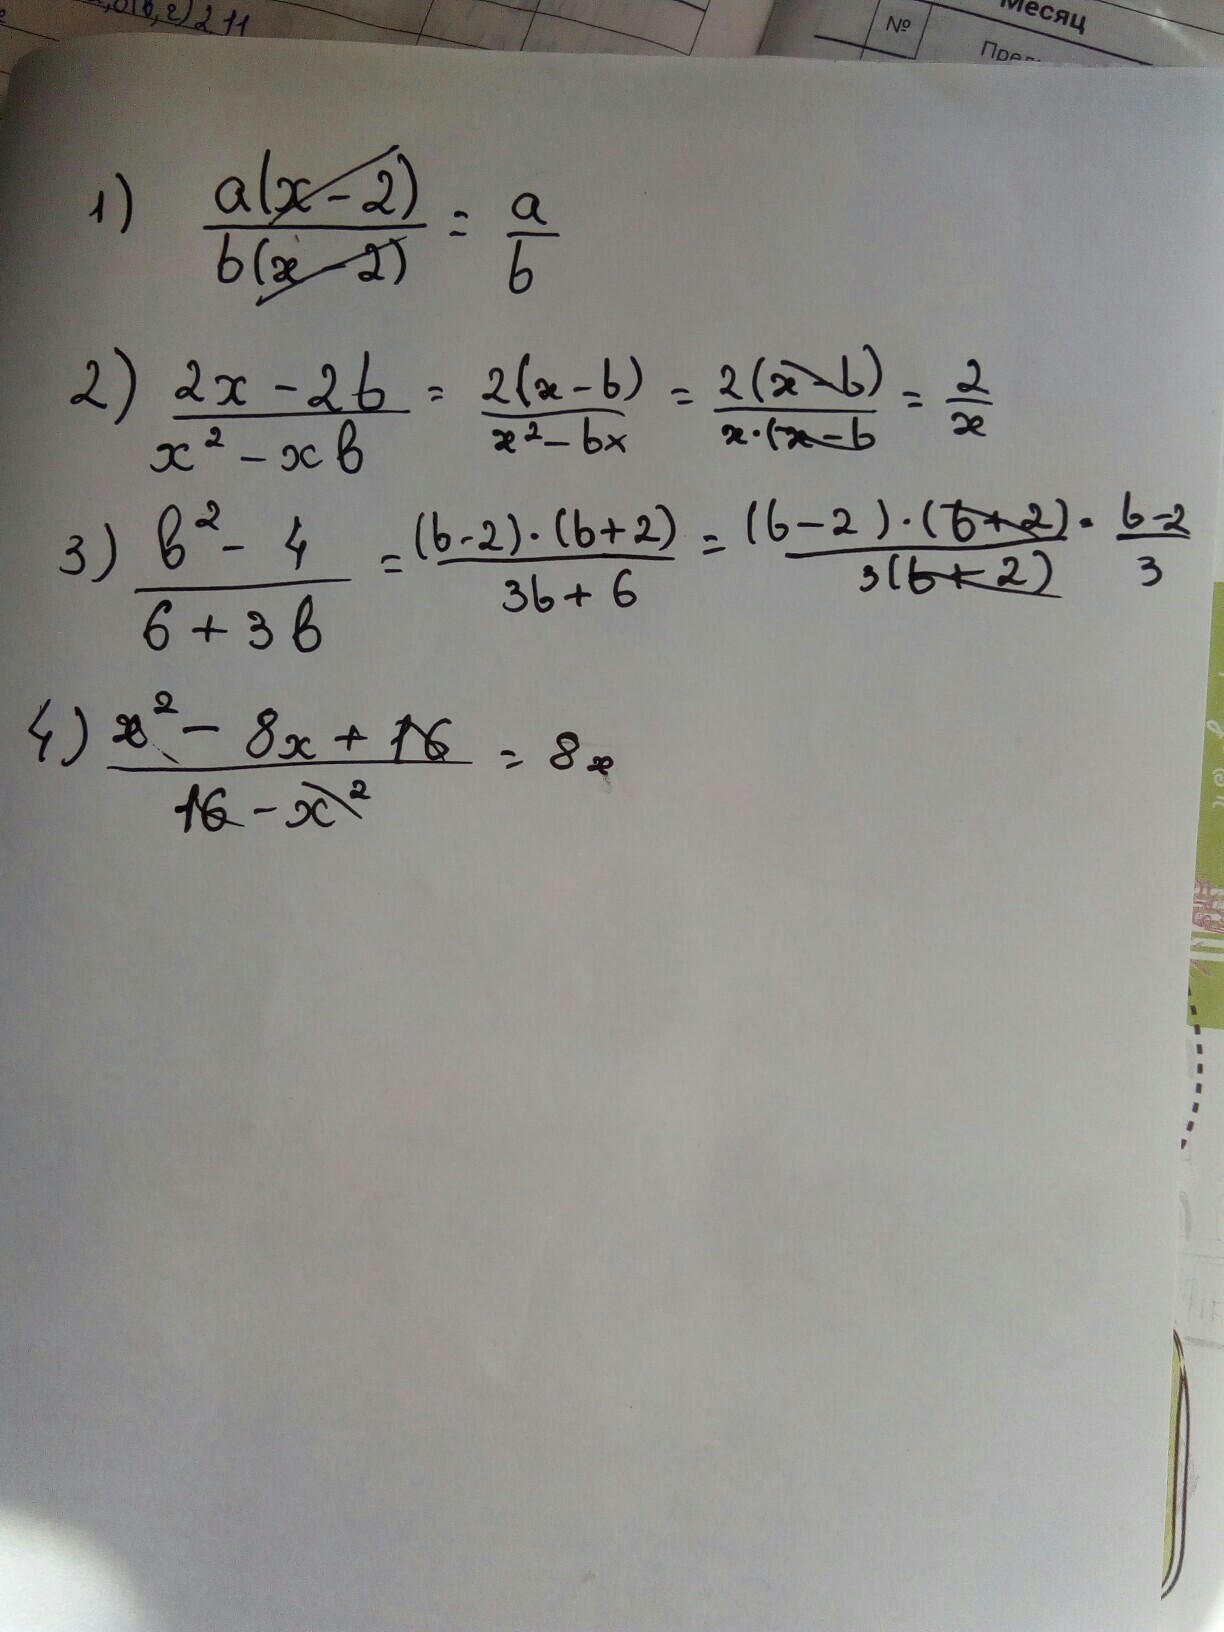 2 11
№
Месяц
1) a(x-2)/b(x-2) = a/b
2) 2x-2b/x²-xb = 2(x-b)/x²-bx = 2(x-b)/x·(x-b = 2/x
3) b²-4/6+3b = (b-2)·(b+2)/3b+6 = (b-2)·(b+2)/3(b+2) = b-2/3
4) x²-8x+16/16-x² = 8x